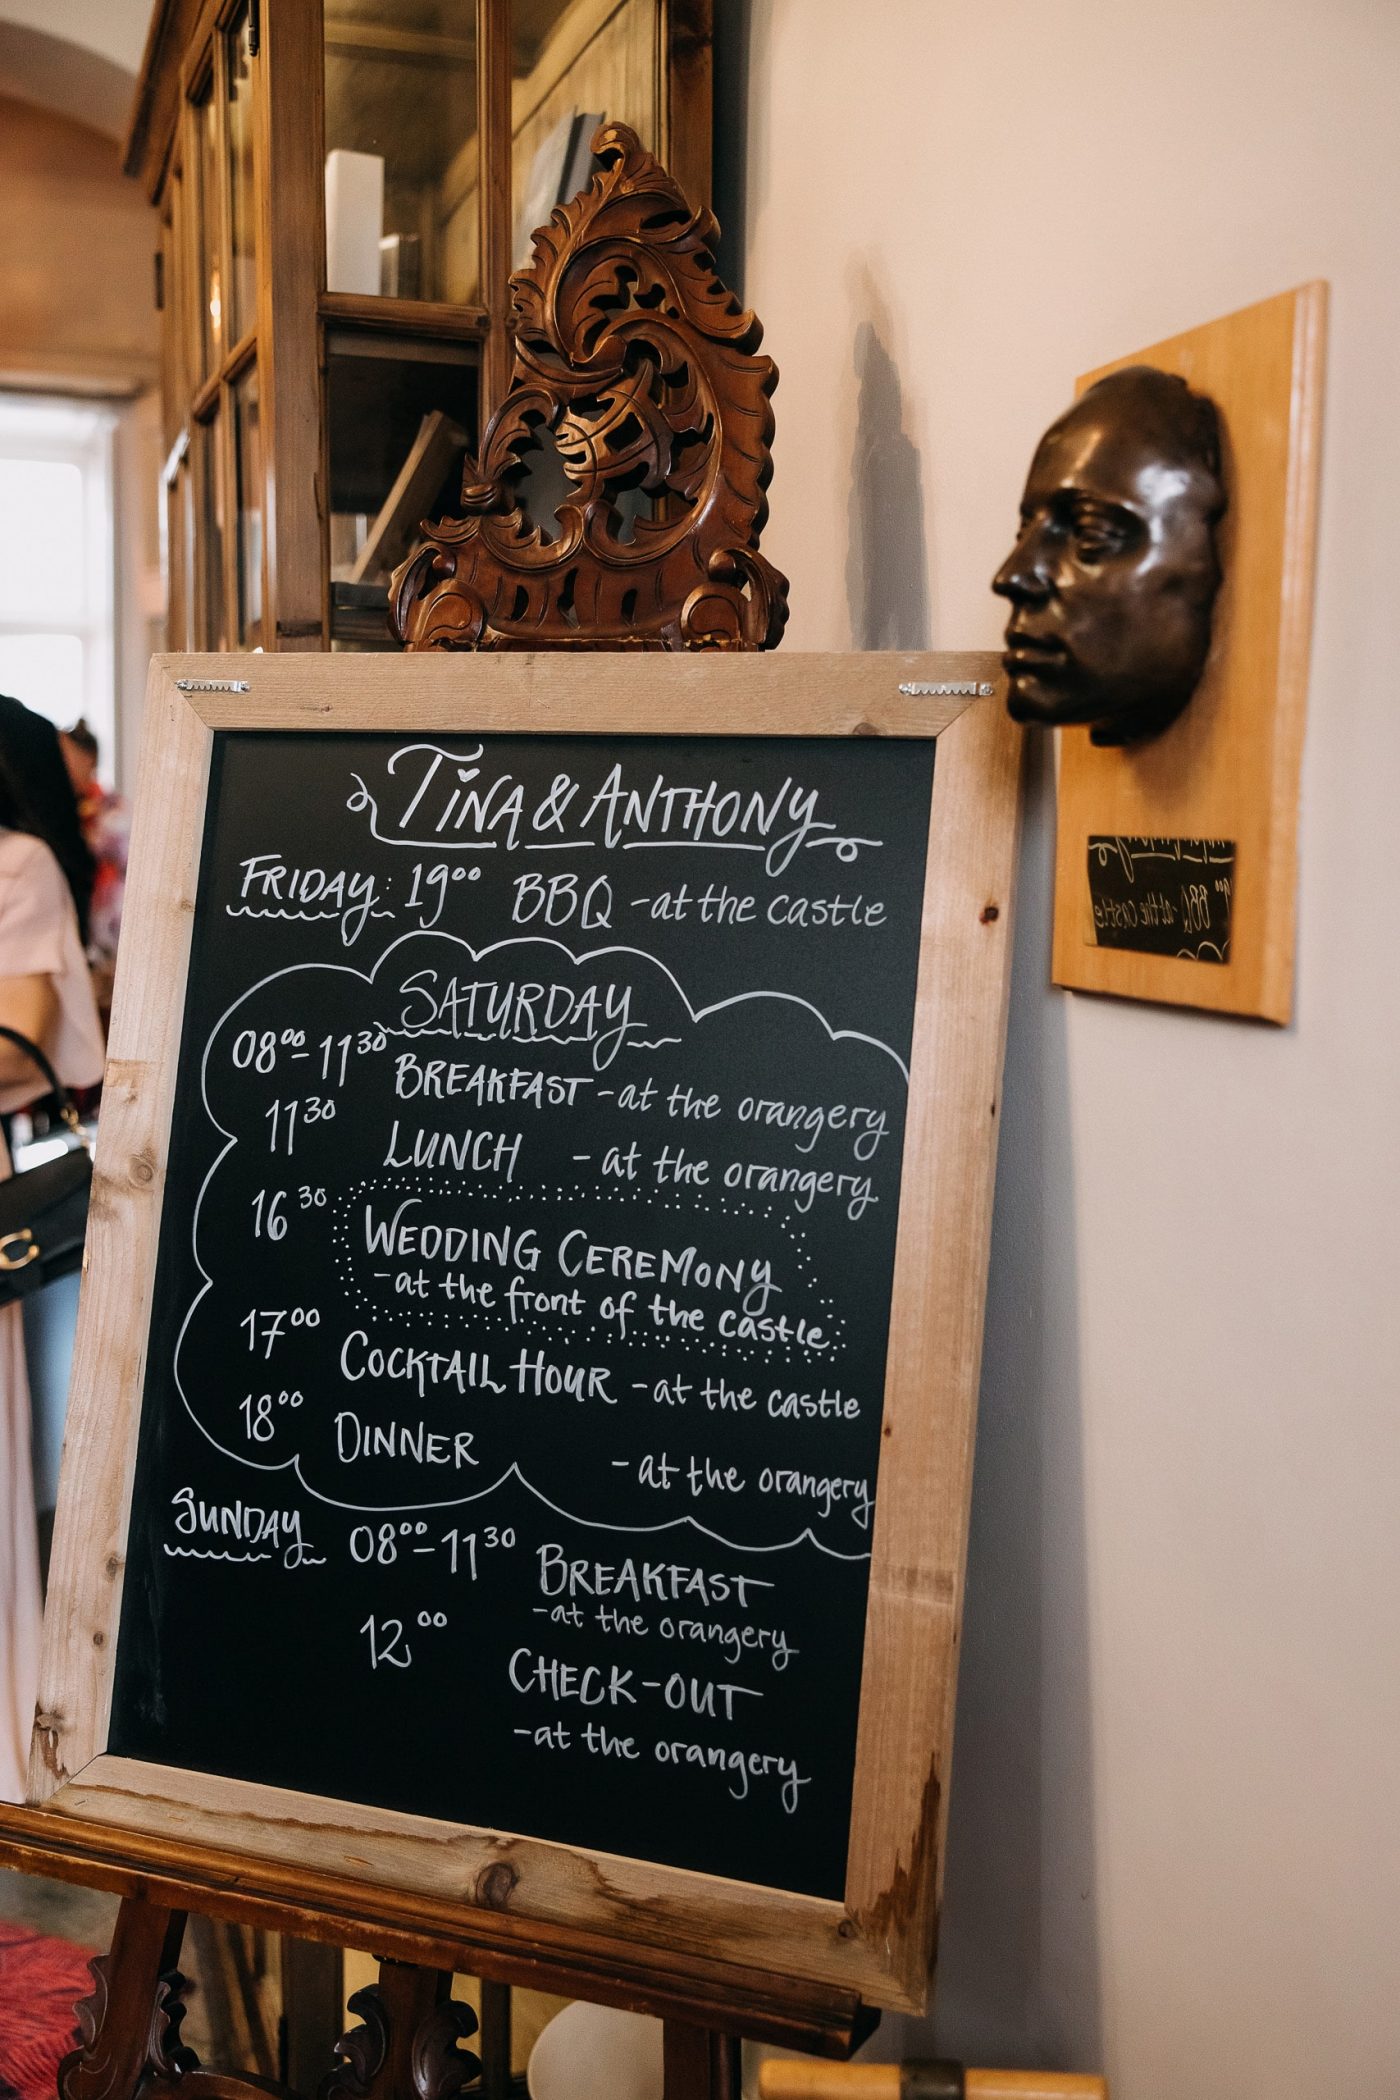 TINA & ANTHONY
FRIDAY: 19⁰⁰ BBQ - at the castle
SATURDAY
08⁰⁰-11³⁰ BREAKFAST - at the orangery
11³⁰ LUNCH - at the orangery
16³⁰ WEDDING CEREMONY
- at the front of the castle
17⁰⁰ COCKTAIL HOUR - at the castle
18⁰⁰ DINNER - at the orangery
SUNDAY 08⁰⁰-11³⁰ BREAKFAST
- at the orangery
12⁰⁰ CHECK-OUT
- at the orangery